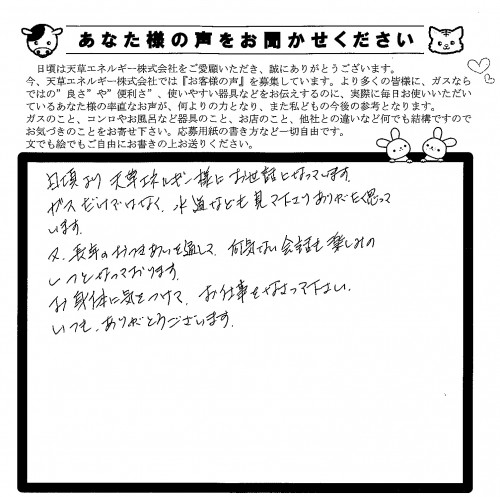 あなた様の声をお聞かせください
日頃は天草エネルギー株式会社をご愛顧いただき、誠にありがとうございます。
今、天草エネルギー株式会社では『お客様の声』を募集しています。より多くの皆様に、ガスなら
ではの"良さ"や"便利さ"、使いやすい器具などをお伝えするのに、実際に毎日お使いいただい
ているあなた様の率直なお声が、何よりの力となり、また私どもの今後の参考となります。
ガスのこと、コンロやお風呂など器具のこと、お店のこと、他社との違いなど何でも結構ですので
お気づきのことをお寄せ下さい。応募用紙の書き方など一切自由です。
文でも絵でもご自由にお書きの上お送りください。
日頃より 天草エネルギー様に お世話になっています。
ガスだけでなく、水道なども見て下さりありがたく思って
います。
又、長年のおつきあいを通して、何気ない会話も楽しみの
一つとなっております。
お身体に気をつけて、お仕事をなさって下さい。
いつも、ありがとうございます。